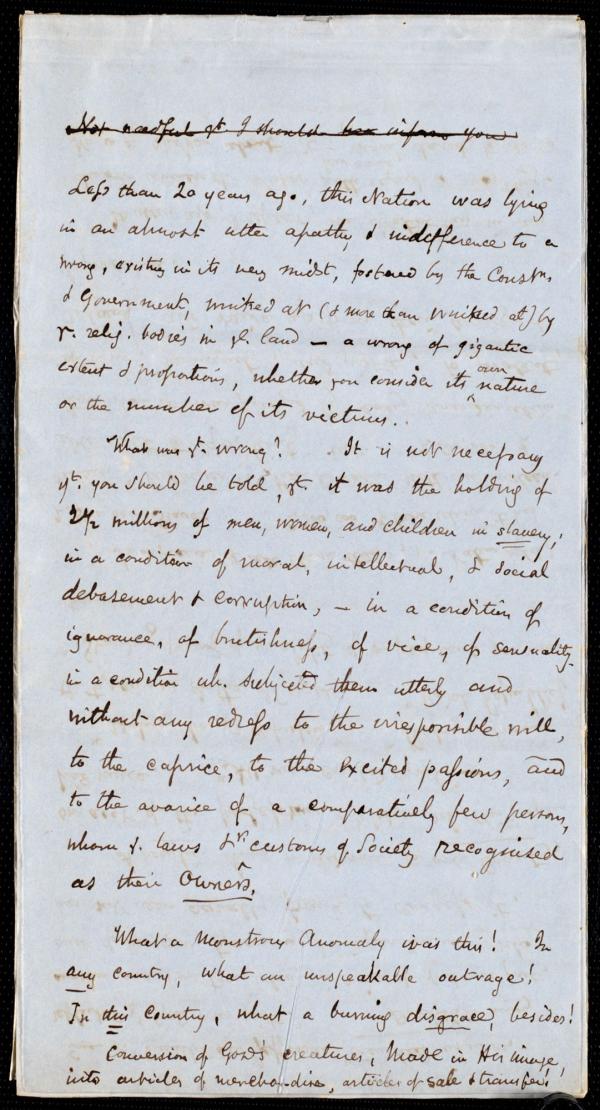 Not needful yt I should inform you
Less than 20 years ago, this Nation was lying
in an almost utter apathy & indifference to a
wrong, existing in its very midst, fostered by the Constn.
& Government, winked at (& more than winked at) by
ye. relig. bodies in ye. land – a wrong of gigantic
extent & proportions, whether you consider its own nature
or the number of its victims..
What was yt. wrong? It is not necessary
yt. you should be told, yt. it was the holding of
2½ millions of men, women, and children in slavery;
in a condition of moral, intellectual, & social
debasement & corruption, – in a condition of
ignorance, of brutishness, of vice, of sensuality –
in a condition wh. subjected them utterly and
without any redress to the irresponsible will,
to the caprice, to the excited passions, and
to the avarice of a comparatively few persons,
whom ye. laws & customs of Society recognised
as their Owners.
What a Monstrous Anomaly was this! In
any country, what an unspeakable outrage!
In this Country, what a burning disgrace, besides!
Conversion of God's creatures, Made in His image,
into articles of merchandise, articles of sale & transfer!